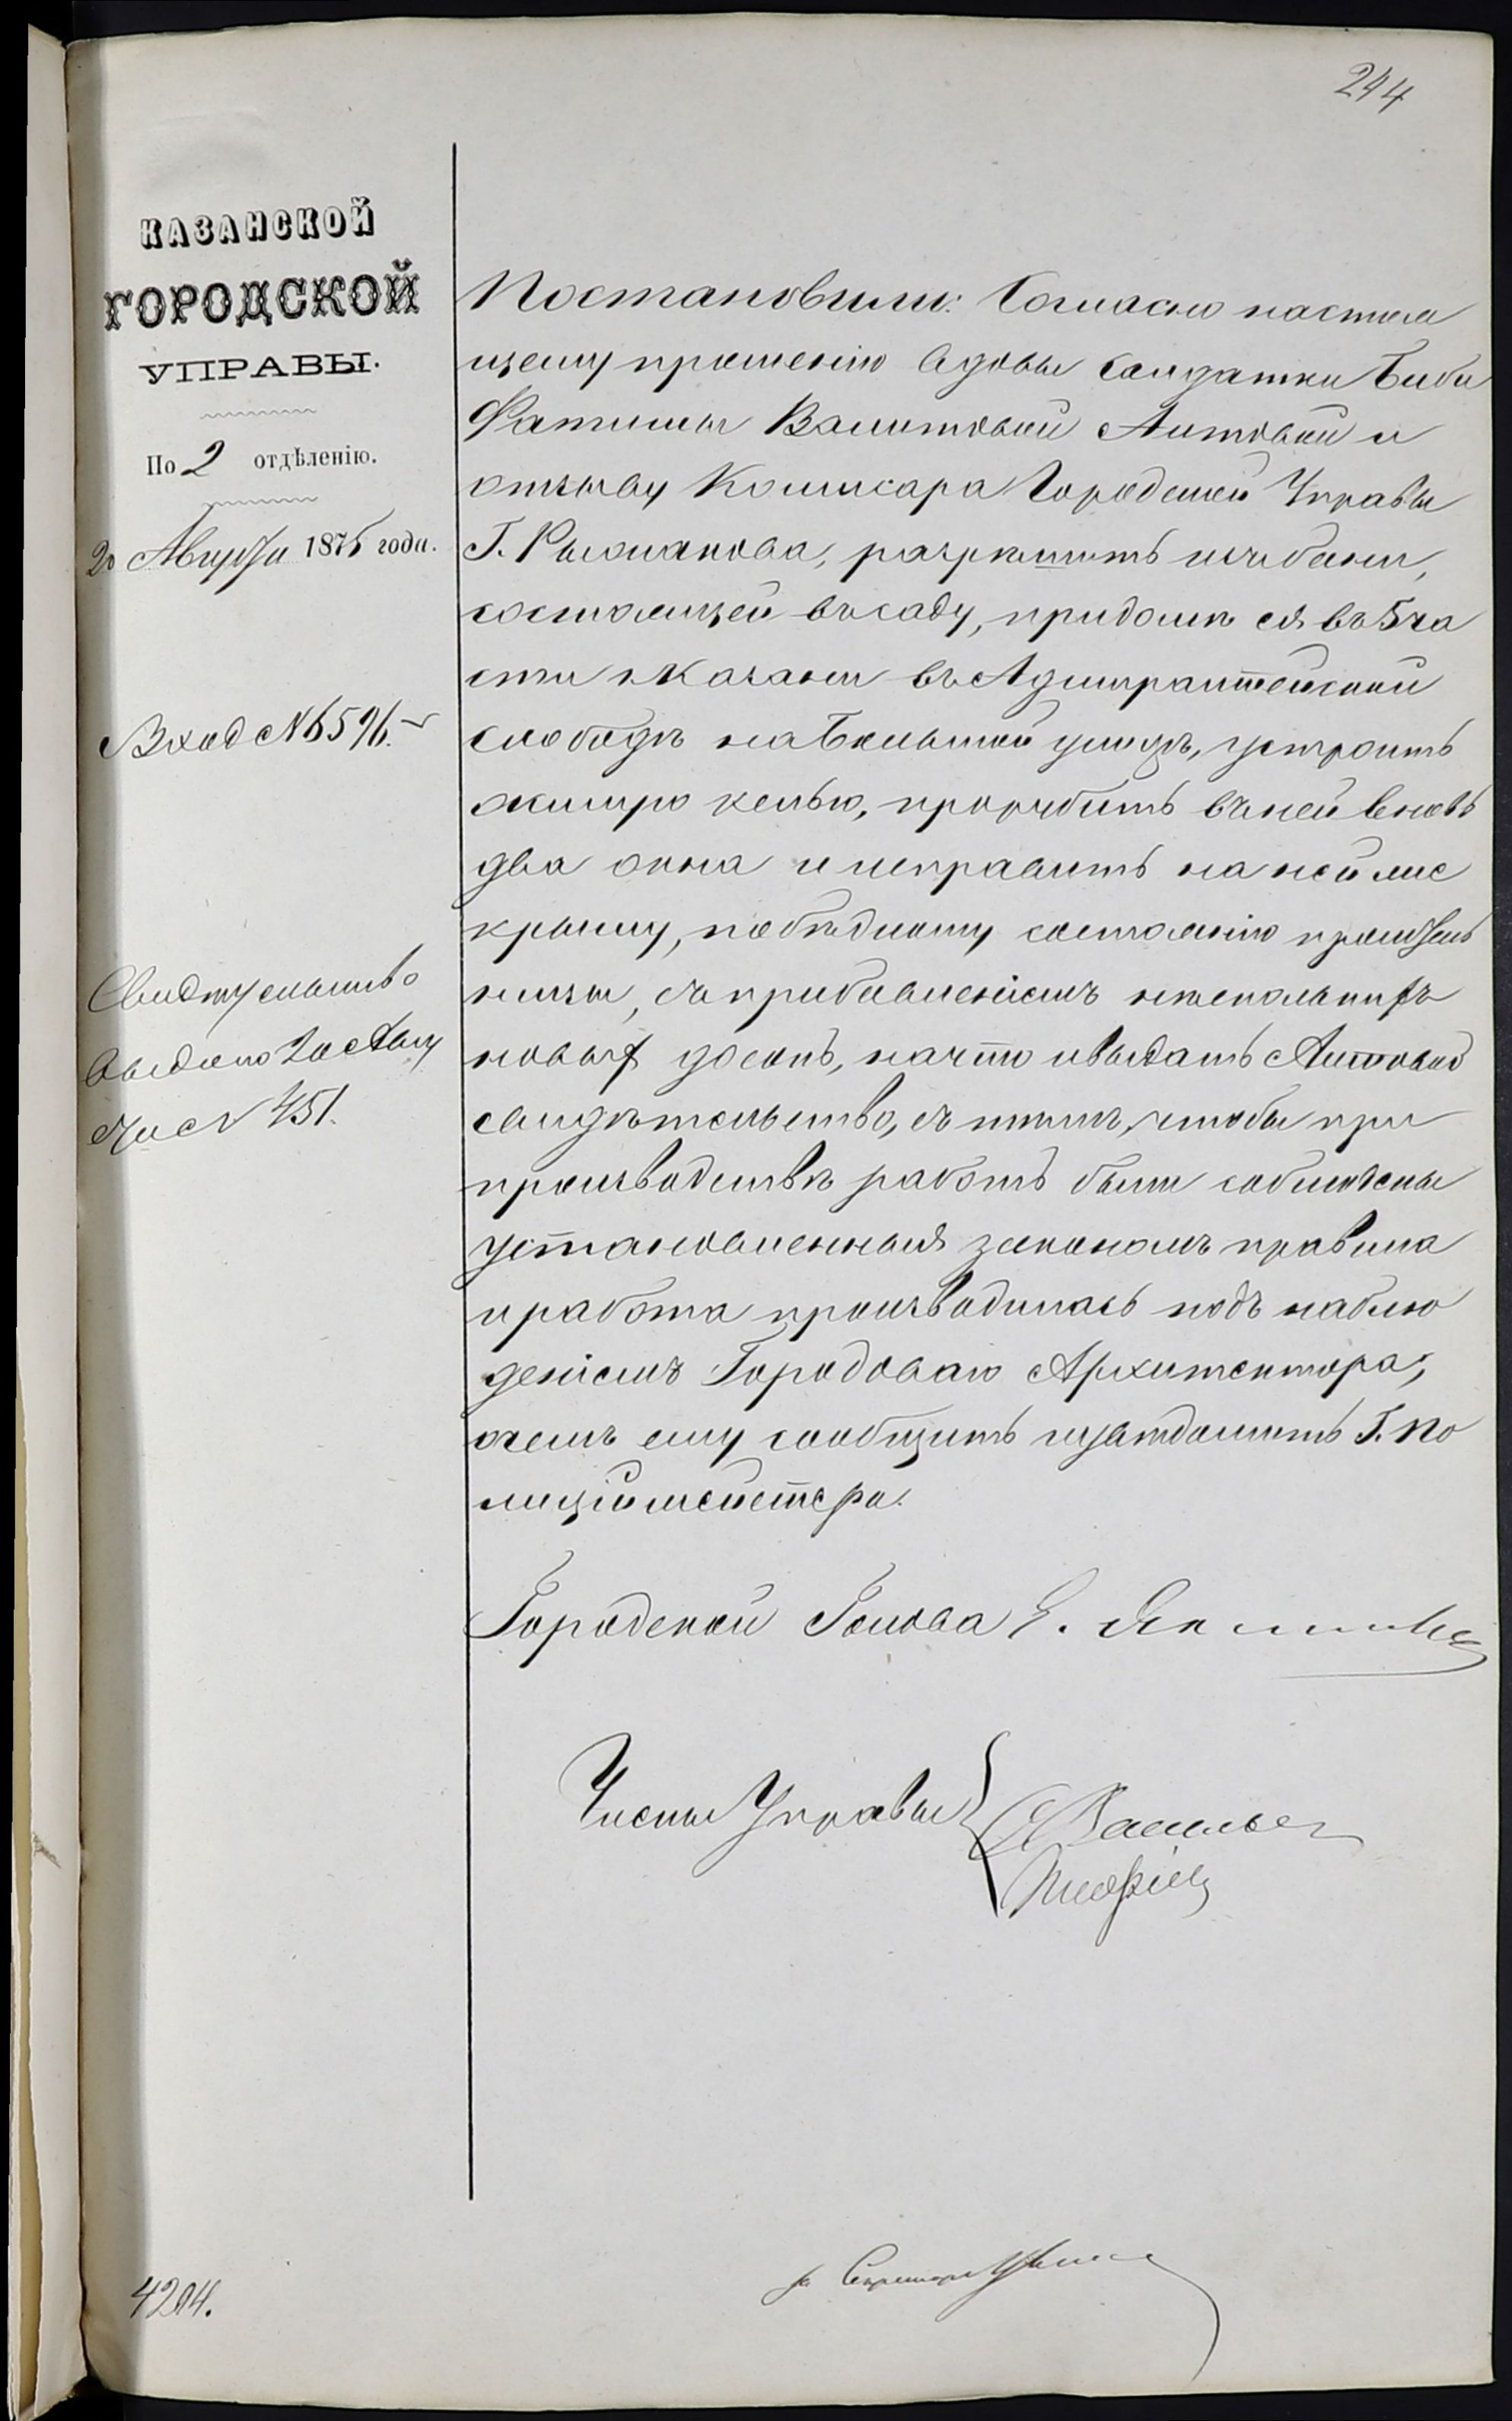 244
КАЗАНСКОЙ
ГОРОДСКОЙ
УПРАВЫ.
По 2 отдѣленію.
20 Августа 1875 года.
Вход № 6596.
Свидѣтельство
выдано 20 Авгу
за № 451.
Постановили: Согласно настоя
щему прошенію вдовы солдатки Биби
Фатимы Валитовой Аитовой и
отзыву Коммисара Городской Управы
Г. Рыжанова, разрѣшить изъ бани,
состоящей въ саду, при домѣ ея въ 5 ча
сти г. Казани въ Адмиралтейской
слободѣ на Большой улицѣ, устроить
жилую келью, прорубить въ ней вновь
два окна и исправить на ней же
крышу, по бѣдному состоянію проситель
ницы, съ прибавленіемъ нѣсколькихъ
новыхъ досокъ, на что и выдать Аитовой
свидѣтельство, съ тѣмъ, чтобы при
производствѣ работъ были соблюдены
установленныя закономъ правила
и работа производилась подъ наблю
деніемъ Городоваго Архитектора,
о чемъ ему сообщить и увѣдомить Г. По
лиціймейстера.
Городской Голова Э. Янишевскій
Члены Управы
Васильев
за Секретаря
4204.